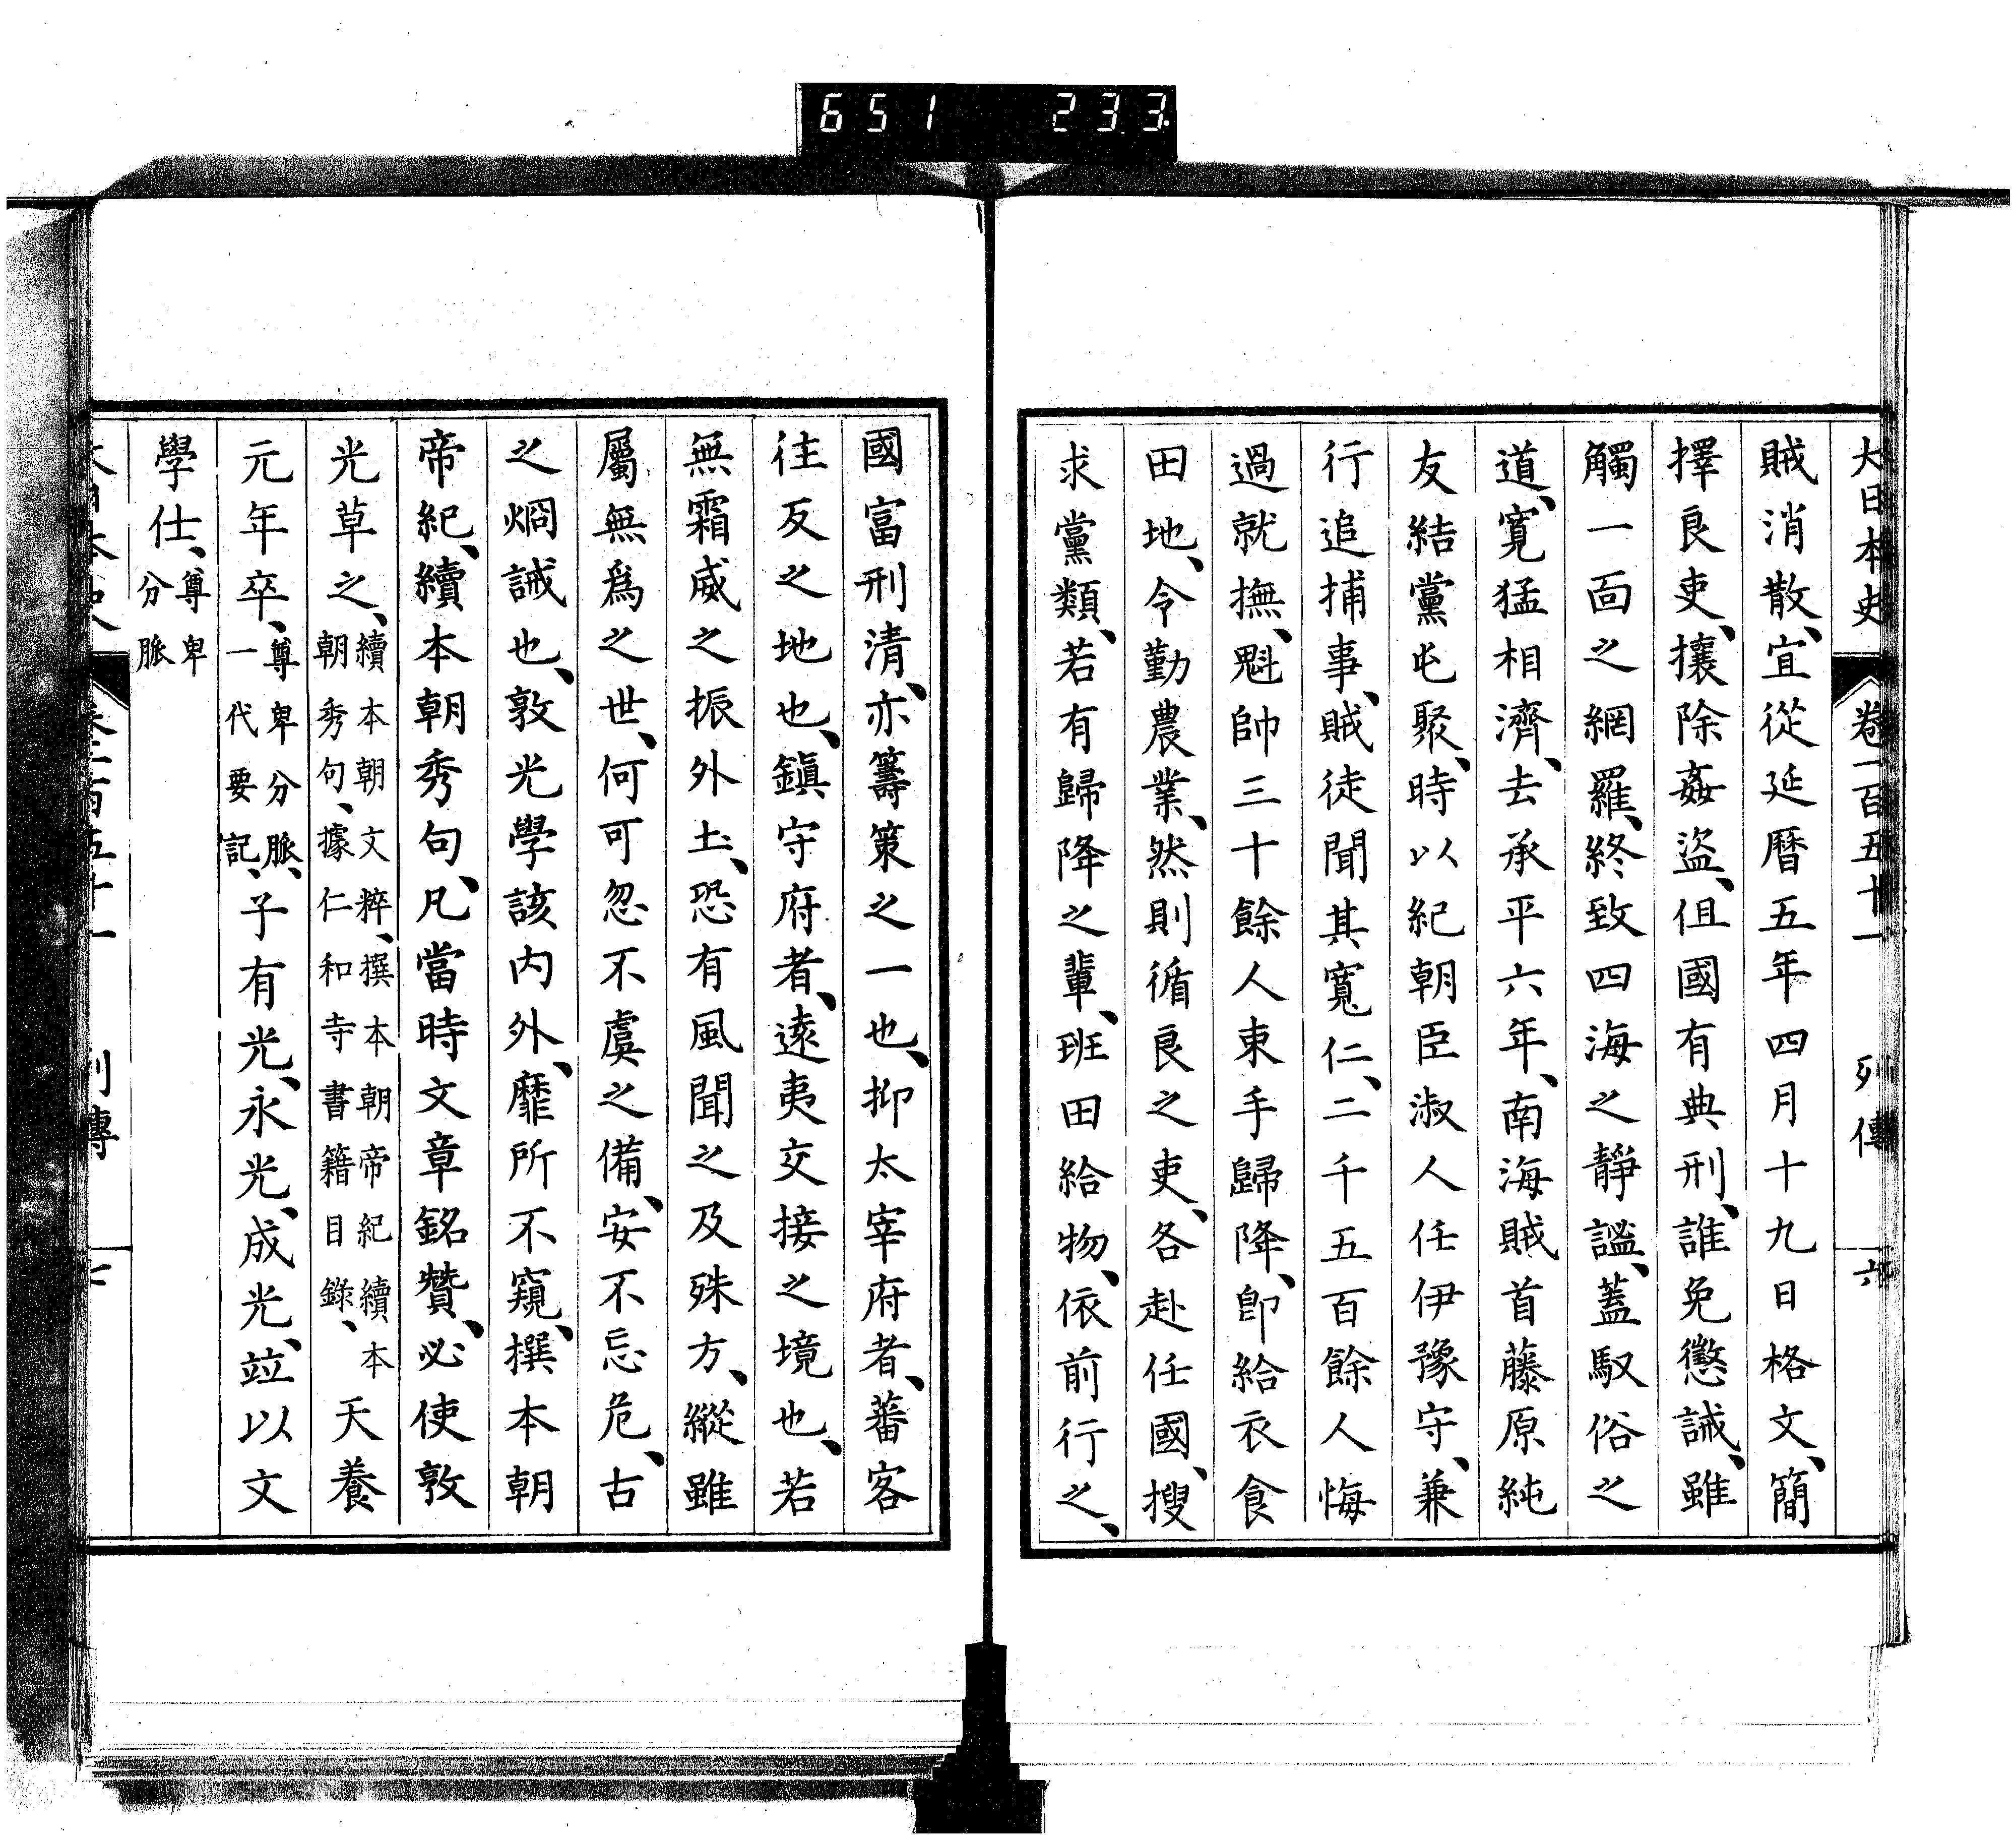 651 233
大日本史 卷一百五十一 列傳 六
賊消散、宜從延曆五年四月十九日格文、簡
擇良吏、攘除姦盜、伹國有典刑、誰免懲誡、雖
觸一面之網羅、終致四海之靜謐、蓋馭俗之
道、寬猛相濟、去承平六年、南海賊首藤原純
友結黨屯聚、時以紀朝臣淑人任伊豫守、兼
行追捕事、賊徒聞其寬仁、二千五百餘人悔
過就撫、魁帥三十餘人束手歸降、卽給衣食
田地、令勤農業、然則循良之吏、各赴任國、搜
求黨類、若有歸降之輩、班田給物、依前行之、
國富刑清、亦籌策之一也、抑太宰府者、蕃客
往反之地也、鎭守府者、遠夷交接之境也、若
無霜威之振外土、恐有風聞之及殊方、縱雖
屬無爲之世、何可忽不虞之備、安不忘危、古
之烱誡也、敦光學該内外、靡所不窺、撰本朝
帝紀、續本朝秀句、凡當時文章銘贊、必使敦
光草之、續本朝文粹、撰本朝帝紀續本朝秀句、據仁和寺書籍目錄、天養
元年卒、尊卑分脈、一代要記、子有光、永光、成光、竝以文
學仕、尊卑分脈
大日本史 卷一百五十一 列傳 七